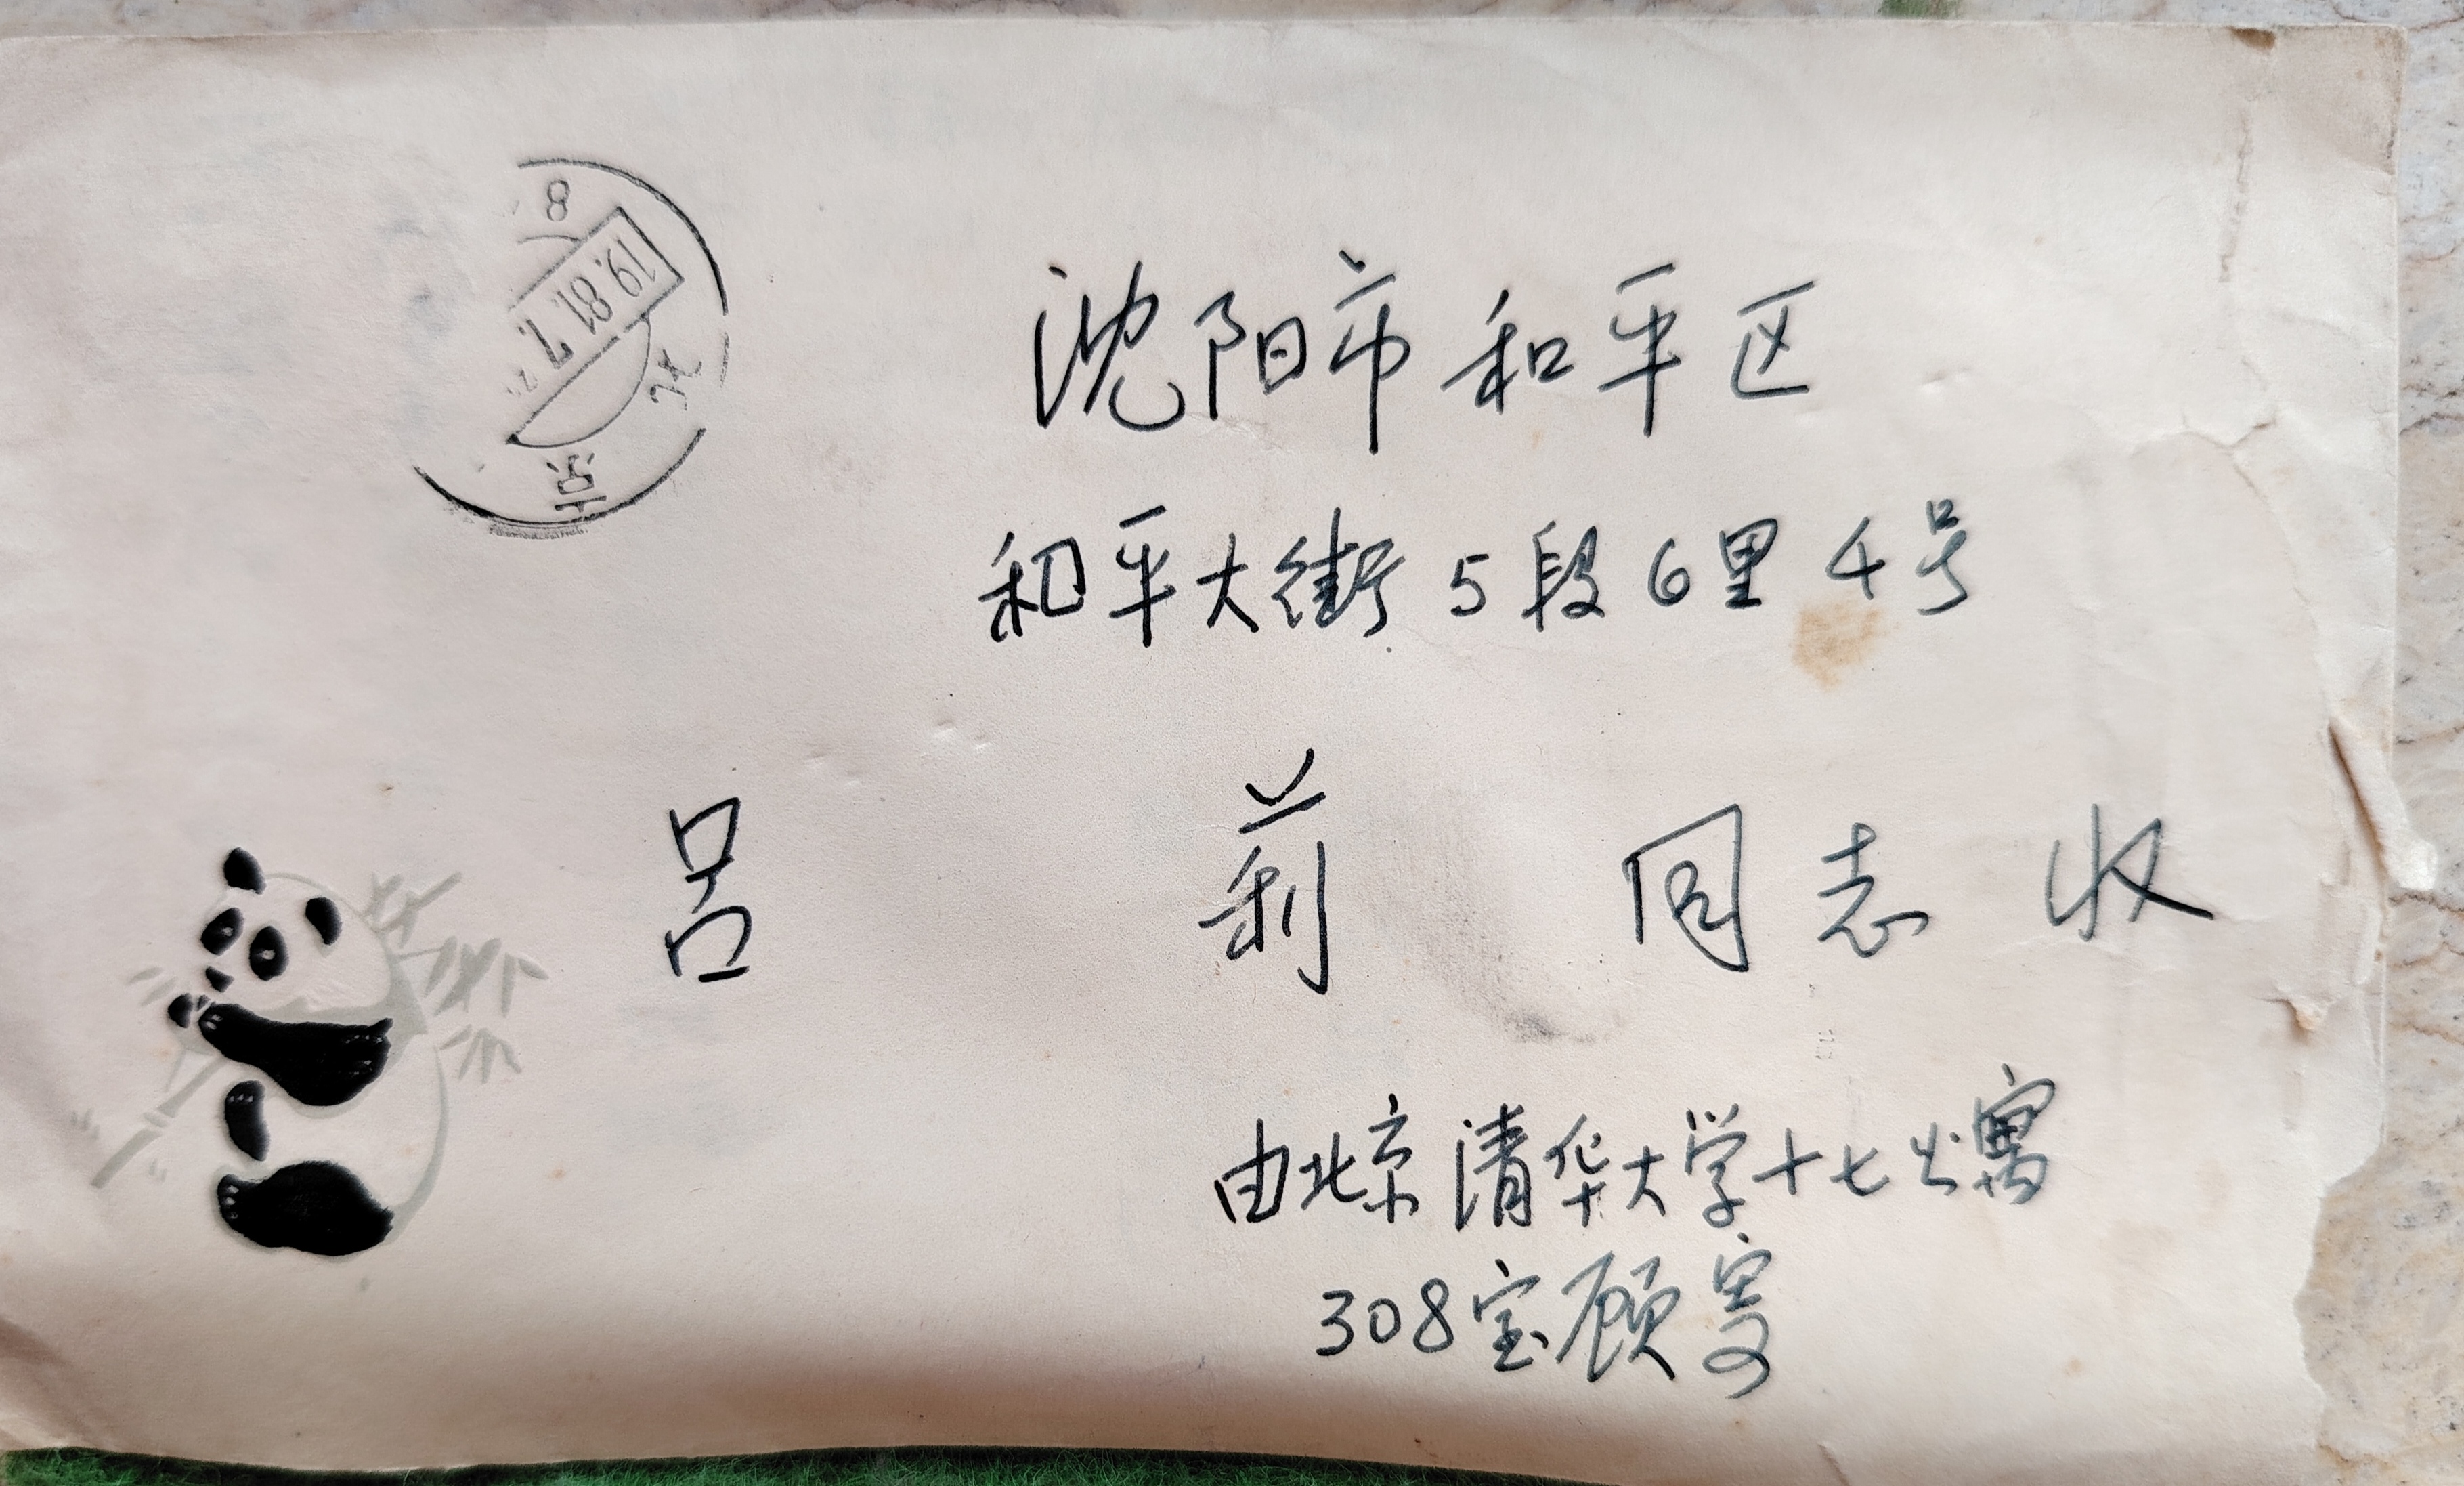 8
19.81.7
北京
沈阳市和平区
和平大街5段6里4号
吕莉同志收
由北京清华大学十七公寓
308室顾